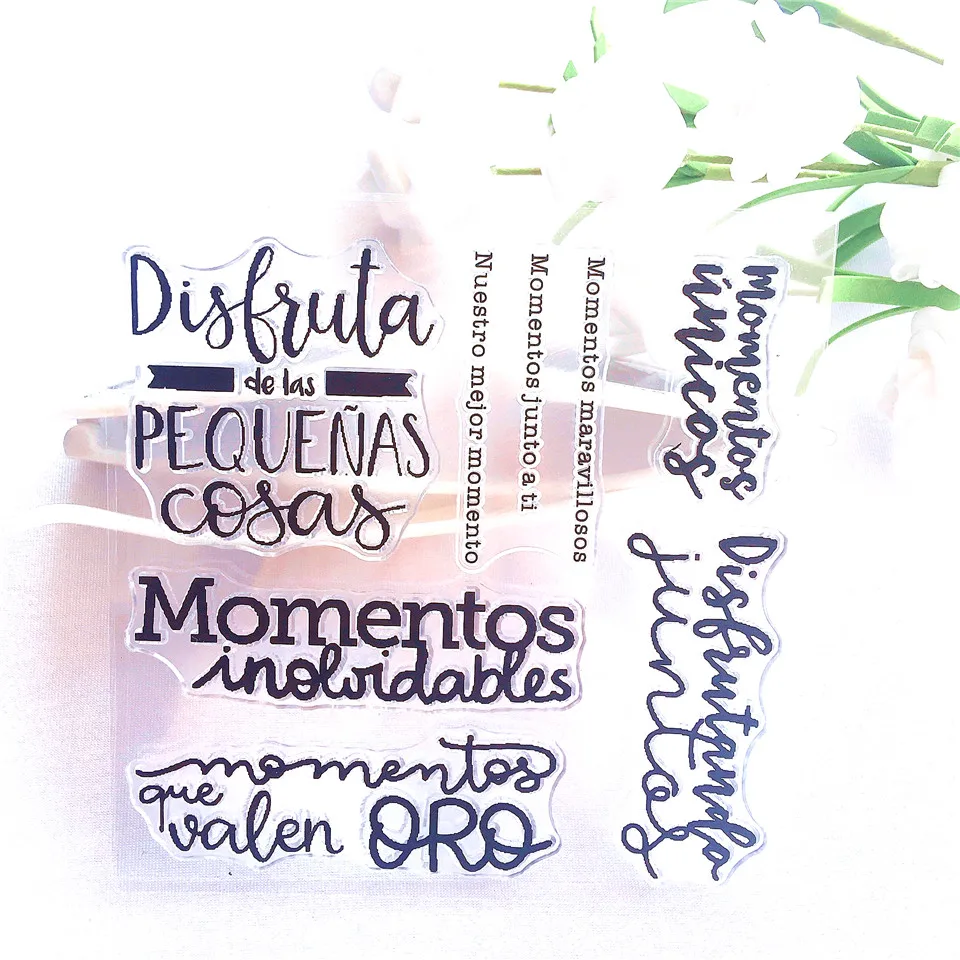 Disfruta
de las
PEQUEÑAS
cosas
Momentos maravillosos
Momentos junto a ti
Nuestro mejor momento
momentos
únicos
Momentos
inolvidables
Disfrutando
juntos
momentos
que
valen ORO